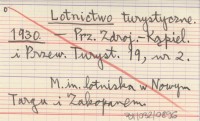 Lotnictwo turystyczne.
1930 – Prz. Zdroj.-Kąpiel.
i Przew. Turyst. 19, nr 2.
M. in. lotniska w Nowym
Targu i Zakopanem.